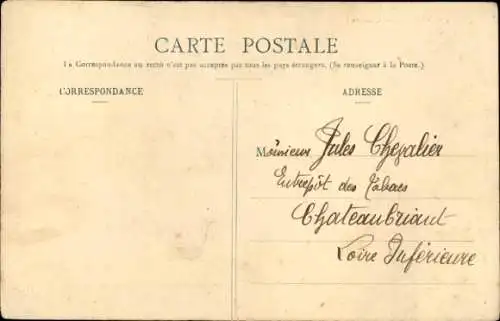 CARTE POSTALE
La Correspondance au recto n'est pas acceptée par tous les pays étrangers. (Se renseigner à la Poste.)
CORRESPONDANCE
ADRESSE
Monsieur Jules Chevalier
Entrepôt des Tabacs
Chateaubriant
Loire Inférieure